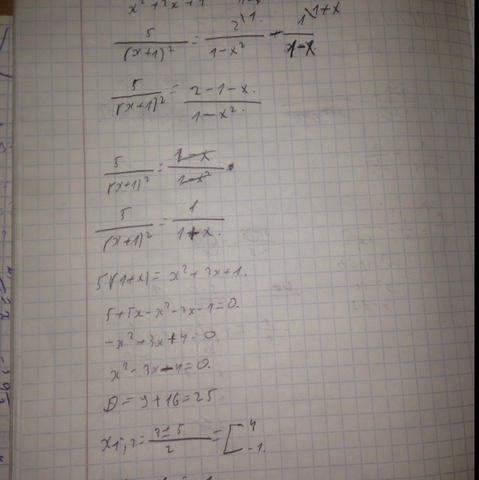 x² + 2x + 1
5/(x+1)² = 2\1/(1-x²) - 1\1+x/(1-x)
5/(x+1)² = (2-1-x)/(1-x²)
5/(x+1)² = (1-x)/(1-x²)
5/(x+1)² = 1/(1+x)
5(1+x) = x² + 2x + 1.
5+5x-x²-2x-1=0.
-x²+3x+4=0
x²-3x-4=0.
D=9+16=25
x1,2 = (3±5)/2 = [4 -1.